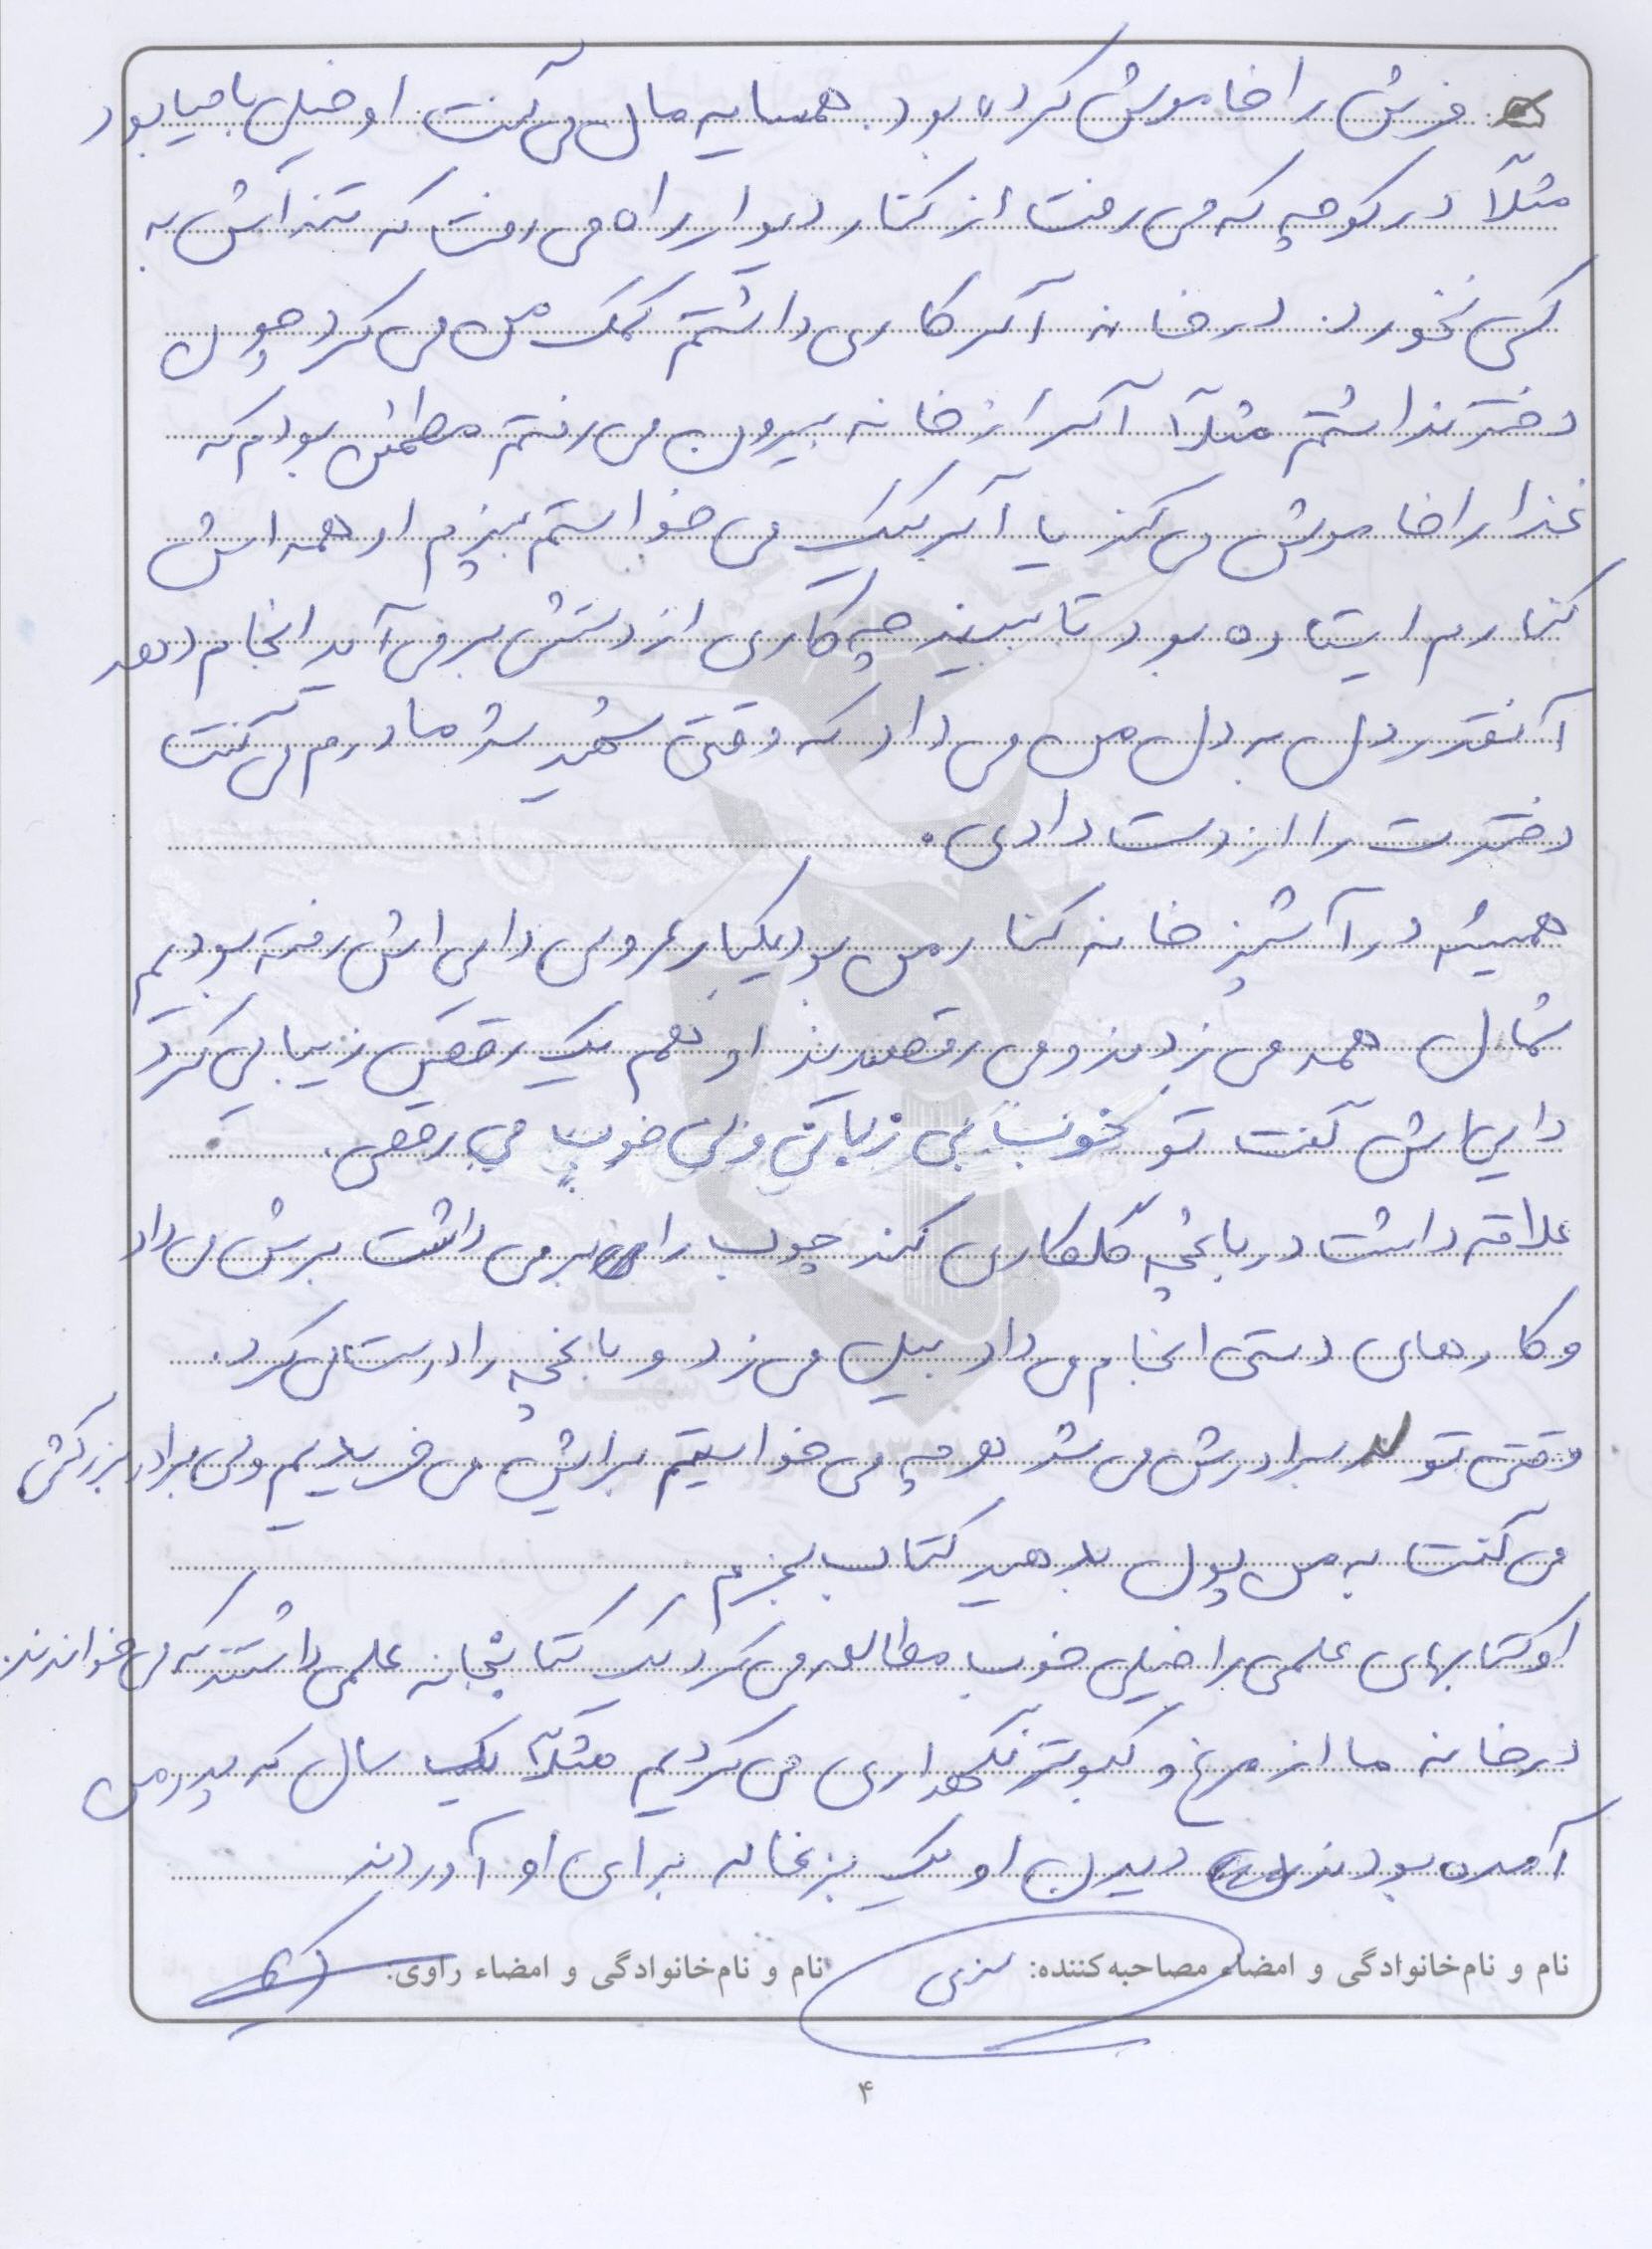 فرش را خاموش کرده بود. همسایه مان می‌گفت: او خیلی باحیا بود
مثلاً در کوچه که می‌رفت از کنار دیوار راه می‌رفت که تنه‌اش به
کسی نخورد. در خانه اگر کاری داشتم کمک من می‌کرد چون
دختر نداشتم مثلاً اگر از خانه بیرون می‌رفتم مطمئن بودم که
غذا را خاموش می‌کند یا اگر کیک می‌خواستم بپزم او همه‌اش
کنارم ایستاده بود تا ببیند چه کاری از دستش بر می‌آید انجام دهد
آنقدر دل به دل من می‌داد که وقتی شهید شد مادرم می‌گفت
دخترت را از دست دادی.
همیشه در آشپزخانه کنار من بود یکبار عروسی دایی‌اش رفته بودیم
شمال همه می‌زدند و می‌رقصیدند او هم یک رقص زیبا می‌کرد
دایی‌اش گفت تو خوب بی زبانی ولی خوب می‌رقصی.
علاقه داشت در باغچه گلکاری کند چوب را بر می‌داشت برش می‌داد
و کارهای دستی انجام می‌داد بیل می‌زد و باغچه را درست می‌کرد.
وقتی تولد برادرش می‌شد هرچه می‌خواستیم برایش می‌خریدیم ولی برادر بزرگش
می‌گفت به من پول بدهید کتاب بخرم
او کتابهای علمی را خیلی خوب مطالعه می‌کرد یک کتابخانه علمی داشتند که می‌خواندند.
در خانه ما از مرغ و کبوتر نگهداری می‌کردیم مثلاً یک سال که پدر من
آمده بودند دیدن او یک بزغاله برای او آوردند
نام و نام‌خانوادگی و امضاء مصاحبه‌کننده: نام و نام‌خانوادگی و امضاء راوی:
۴